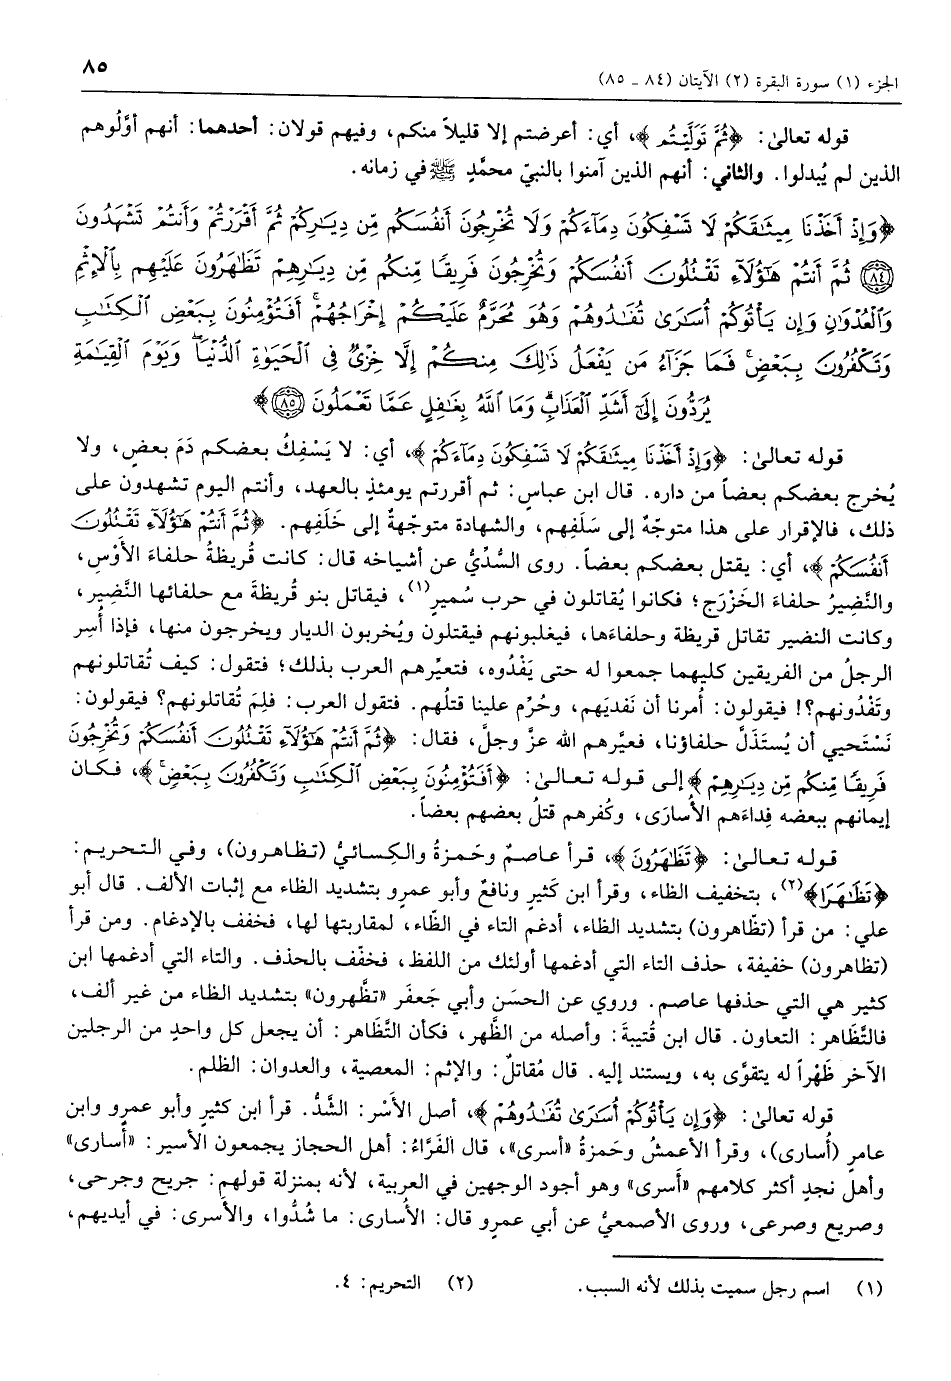 الجزء (١) سورة البقرة (٢) الآيتان (٨٤ ـ ٨٥)
٨٥
قوله تعالىٰ: ﴿ثُمَّ تَوَلَّيْتُم﴾، أي: أعرضتم إلا قليلاً منكم، وفيهم قولان: أحدهما: أنهم أوَّلُوهم
الذين لم يُبدلوا. والثاني: أنهم الذين آمنوا بالنبيّ محمَّدٍ ﷺ في زمانه.
﴿وَإِذْ أَخَذْنَا مِيثَٰقَكُمْ لَا تَسْفِكُونَ دِمَآءَكُمْ وَلَا تُخْرِجُونَ أَنفُسَكُم مِّن دِيَٰرِكُمْ ثُمَّ أَقْرَرْتُمْ وَأَنتُمْ تَشْهَدُونَ
﴿٨٤﴾ ثُمَّ أَنتُمْ هَٰٓؤُلَآءِ تَقْتُلُونَ أَنفُسَكُمْ وَتُخْرِجُونَ فَرِيقًا مِّنكُم مِّن دِيَٰرِهِمْ تَظَٰهَرُونَ عَلَيْهِم بِٱلْإِثْمِ
وَٱلْعُدْوَٰنِ وَإِن يَأْتُوكُمْ أُسَٰرَىٰ تُفَٰدُوهُمْ وَهُوَ مُحَرَّمٌ عَلَيْكُمْ إِخْرَاجُهُمْ ۚ أَفَتُؤْمِنُونَ بِبَعْضِ ٱلْكِتَٰبِ
وَتَكْفُرُونَ بِبَعْضٍ ۚ فَمَا جَزَآءُ مَن يَفْعَلُ ذَٰلِكَ مِنكُمْ إِلَّا خِزْىٌ فِى ٱلْحَيَوٰةِ ٱلدُّنْيَا ۖ وَيَوْمَ ٱلْقِيَٰمَةِ
يُرَدُّونَ إِلَىٰٓ أَشَدِّ ٱلْعَذَابِ ۗ وَمَا ٱللَّهُ بِغَٰفِلٍ عَمَّا تَعْمَلُونَ ﴿٨٥﴾﴾
قوله تعالىٰ: ﴿وَإِذْ أَخَذْنَا مِيثَٰقَكُمْ لَا تَسْفِكُونَ دِمَآءَكُمْ﴾، أي: لا يَسْفِكُ بعضكم دَمَ بعضٍ، ولا
يُخرج بعضكم بعضاً من داره. قال ابن عباس: ثم أقررتم يومئذٍ بالعهد، وأنتم اليوم تشهدون على
ذلك، فالإقرار على هذا متوجهٌ إلى سَلَفِهم، والشهادة متوجّهةٌ إلى خَلَفِهم. ﴿ثُمَّ أَنتُمْ هَٰٓؤُلَآءِ تَقْتُلُونَ
أَنفُسَكُمْ﴾، أي: يقتل بعضكم بعضاً. روى السُّدِّيُّ عن أشياخه قال: كانت قُريظةُ حلفاءَ الأَوْس،
والنَّضِيرُ حلفاءَ الخَزْرَج؛ فكانوا يُقاتلون في حرب سُميرٍ(١)، فيقاتل بنو قُريظةَ مع حلفائها النَّضِير،
وكانت النضير تقاتل قريظة وحلفاءَها، فيغلبونهم فيقتلون ويُخربون الديار ويخرجون منها، فإذا أُسِر
الرجلُ من الفريقين كليهما جمعوا له حتى يَفْدُوه، فتعيِّرهم العرب بذلك؛ فتقول: كيف تُقاتلونهم
وتَفْدُونهم؟! فيقولون: أُمرنا أن نَفديَهم، وحُرِّم علينا قتلُهم. فتقول العرب: فلِمَ تُقاتلونهم؟ فيقولون:
نَسْتَحيي أن يُستَذَلَّ حلفاؤنا، فعيَّرهم الله عزَّ وجلَّ، فقال: ﴿ثُمَّ أَنتُمْ هَٰٓؤُلَآءِ تَقْتُلُونَ أَنفُسَكُمْ وَتُخْرِجُونَ
فَرِيقًا مِّنكُم مِّن دِيَٰرِهِمْ﴾ إلى قوله تعالىٰ: ﴿أَفَتُؤْمِنُونَ بِبَعْضِ ٱلْكِتَٰبِ وَتَكْفُرُونَ بِبَعْضٍ ۚ﴾، فكان
إيمانهم ببعضه فِداءَهم الأسارَى، وكُفرهم قتلُ بعضهم بعضاً.
قوله تعالىٰ: ﴿تَظَٰهَرُونَ﴾، قرأ عاصمٌ وحَمزةُ والكِسائيُّ (تظاهرون)، وفي التحريم:
﴿تَظَٰهَرَا﴾(٢)، بتخفيف الظاء، وقرأ ابن كَثيرٍ ونافعٌ وأبو عمرٍو بتشديد الظاء مع إثبات الألف. قال أبو
علي: من قرأ (تظّاهرون) بتشديد الظاء، أدغم التاء في الظاء، لمقاربتها لها، فخفف بالإدغام. ومن قرأ
(تظاهرون) خفيفة، حذف التاء التي أدغمها أولئك من اللفظ، فخفّف بالحذف. والتاء التي أدغمها ابن
كثير هي التي حذفها عاصم. وروي عن الحسَن وأبي جَعفَر «تظَّهرون» بتشديد الظاء من غير ألف،
فالتَّظَاهر: التعاون. قال ابن قُتيبةَ: وأصله من الظَّهر، فكأن التَّظَاهر: أن يجعل كل واحدٍ من الرجلين
الآخر ظَهْراً له يتقوَّى به، ويستند إليه. قال مُقاتلٌ: والإثم: المعصية، والعدوان: الظلم.
قوله تعالىٰ: ﴿وَإِن يَأْتُوكُمْ أُسَٰرَىٰ تُفَٰدُوهُمْ﴾، أصل الأَسْر: الشَّدُّ. قرأ ابن كثيرٍ وأبو عمرٍو وابن
عامرٍ (أُسارى)، وقرأ الأعمشُ وحَمزةُ «أسرى»، قال الفَرَّاءُ: أهل الحجاز يجمعون الأسير: «أُسارى»
وأهل نجدٍ أكثر كلامهم «أَسرى» وهو أجود الوجهين في العربية، لأنه بمنزلة قولهم: جريح وجرحى،
وصريع وصرعى، وروى الأصمعيُّ عن أبي عمرٍو قال: الأُسارى: ما شُدُّوا، والأسرى: في أيديهم،
(١) اسم رجل سميت بذلك لأنه السبب. (٢) التحريم: ٤.